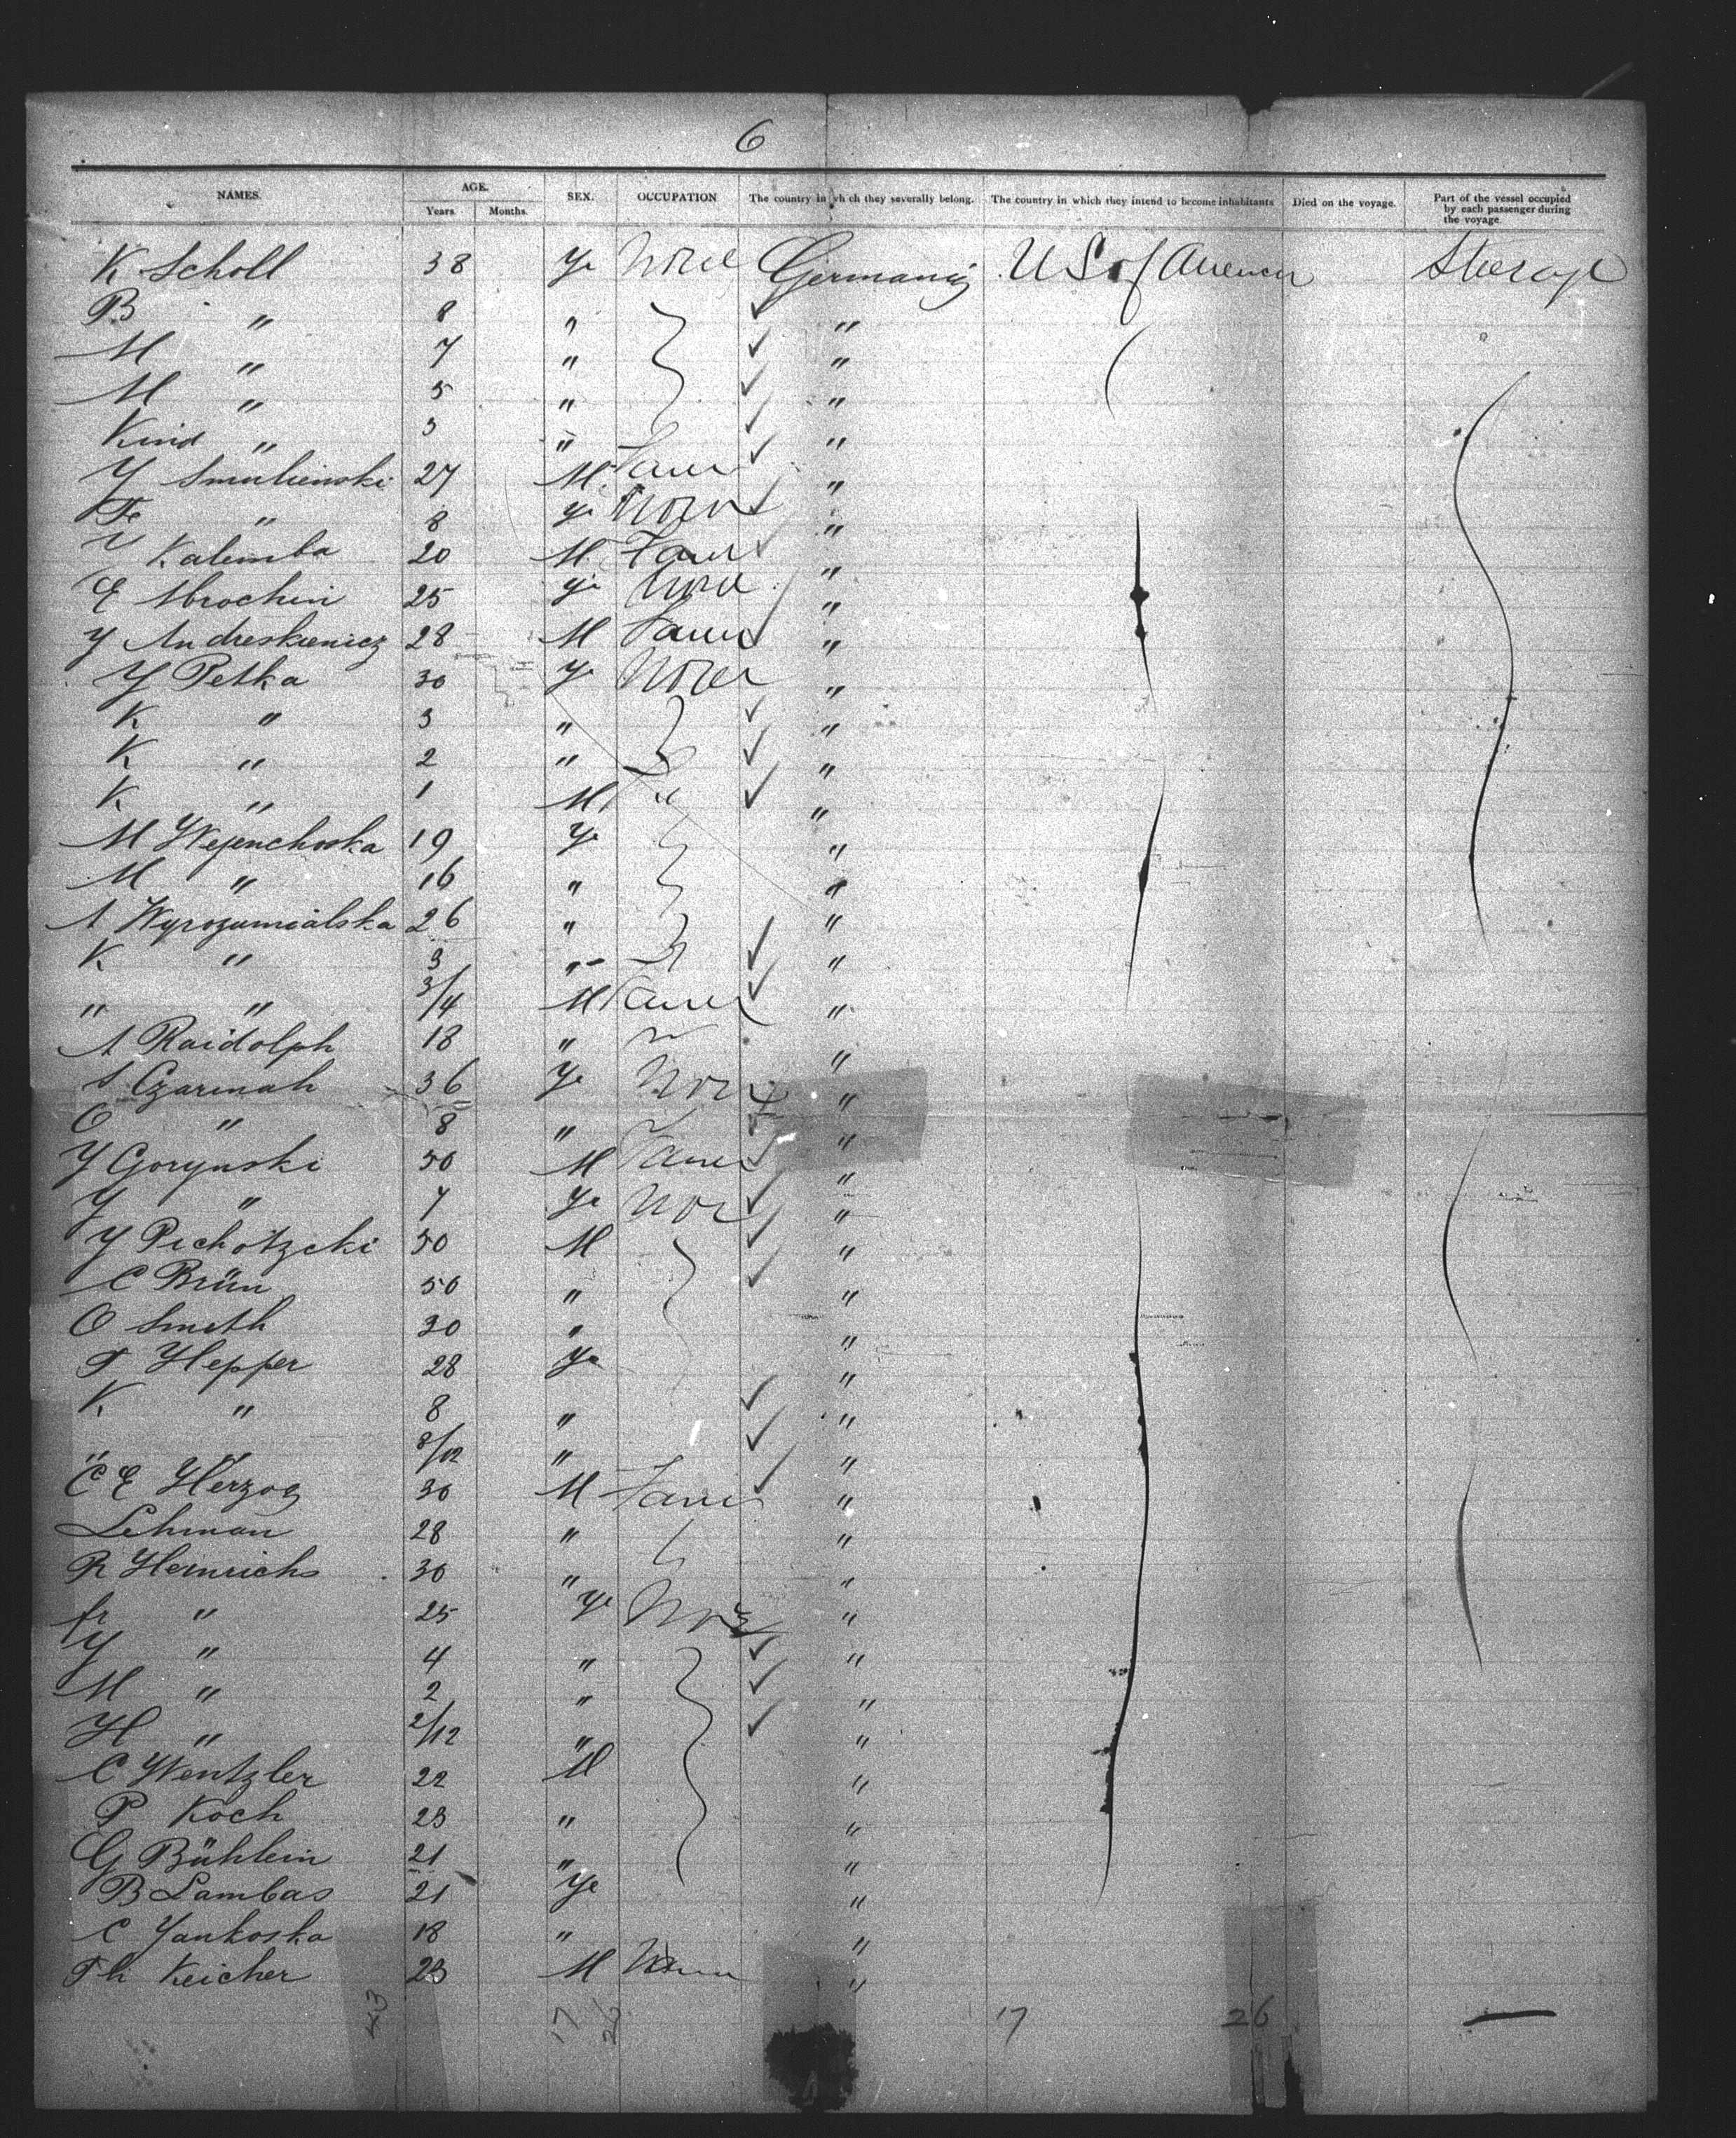 6
NAMES. AGE. Years. Months. SEX. OCCUPATION The country in which they severally belong. The country in which they intend to become inhabitants Died on the voyage. Part of the vessel occupied by each passenger during the voyage.
K Scholl 38 Fe None Germany U S of America Steerage
B " 8 " "
M " 7 " "
M " 5 " "
Kind " 3 " "
Y Smulienski 27 M "
Fe " 8 Fe None "
Kalemba 20 M "
E Mrochin 25 Fe None "
Y Andreskienicz 28 M "
Y Petka 30 Fe None "
K " 3 " "
K " 2 " "
K " 1 M " "
M Wejenchoska 19 Fe "
M " 16 " "
A Wyrozumialska 26 " "
K " 3 " "
" " 3/4 M "
A Raidolph 18 " "
S Czarmah 36 Fe None "
O " 8 " "
Y Gorynski 50 M "
Y " 7 Fe None "
Y Pichotzcki 50 M "
C Brün 50 " "
O Smeth 30 " "
F Hepper 28 Fe "
K " 8 " "
" " 8/12 " "
C E Herzog 30 M "
Lehman 28 " "
R Heinrichs 30 " "
fr " 25 Fe None "
Y " 4 " "
M " 2 " "
H " 2/12 " "
C Wentzler 22 M "
P Koch 23 " "
G Bühlein 21 " "
B Lambas 21 Fe "
C Yankoska 18 " "
Th Keicher 23 M "
43 17 26 17 26